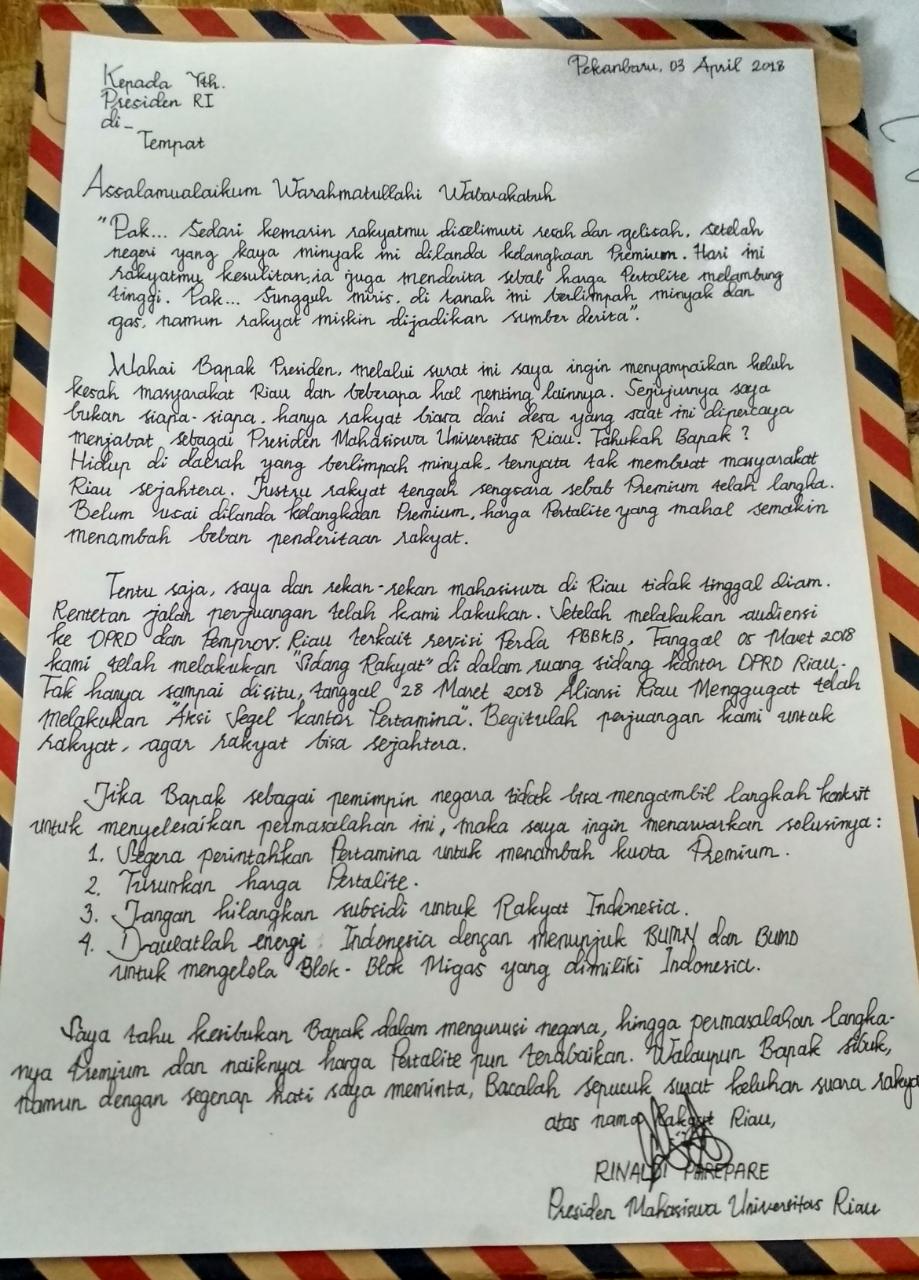 Pekanbaru, 03 April 2018
Kepada Yth.
Presiden RI
di-
Tempat
Assalamualaikum Warahmatullahi Wabarakatuh
"Pak... Sedari kemarin rakyatmu diselimuti resah dan gelisah, setelah
negeri yang kaya minyak ini dilanda kelangkaan Premium. Hari ini
rakyatmu kesulitan, ia juga menderita sebab harga Pertalite melambung
tinggi. Pak... Sungguh miris, di tanah ini berlimpah minyak dan
gas, namun rakyat miskin dijadikan sumber derita".
Wahai Bapak Presiden, melalui surat ini saya ingin menyampaikan keluh
kesah masyarakat Riau dan beberapa hal penting lainnya. Sejujurnya saya
bukan siapa-siapa, hanya rakyat biasa dari desa yang saat ini dipercaya
menjabat sebagai Presiden Mahasiswa Universitas Riau. Tahukah Bapak ?
Hidup di daerah yang berlimpah minyak, ternyata tak membuat masyarakat
Riau sejahtera. Justru rakyat tengah sengsara sebab Premium telah langka.
Belum usai dilanda kelangkaan Premium, harga Pertalite yang mahal semakin
menambah beban penderitaan rakyat.
Tentu saja, saya dan rekan-rekan mahasiswa di Riau tidak tinggal diam.
Rentetan jalan perjuangan telah kami lakukan. Setelah melakukan audiensi
ke DPRD dan Pemprov. Riau terkait revisi Perda PBBKB, Tanggal 05 Maret 2018
kami telah melakukan "Sidang Rakyat" di dalam ruang sidang kantor DPRD Riau.
Tak hanya sampai disitu, tanggal 28 Maret 2018 Aliansi Riau Menggugat telah
melakukan "Aksi Segel kantor Pertamina". Begitulah perjuangan kami untuk
rakyat, agar rakyat bisa sejahtera.
Jika Bapak sebagai pemimpin negara tidak bisa mengambil langkah konkrit
untuk menyelesaikan permasalahan ini, maka saya ingin menawarkan solusinya :
1. Segera perintahkan Pertamina untuk menambah kuota Premium.
2. Turunkan harga Pertalite.
3. Jangan hilangkan subsidi untuk Rakyat Indonesia.
4. Daulatlah energi Indonesia dengan menunjuk BUMN dan BUMD
untuk mengelola Blok-Blok Migas yang dimiliki Indonesia.
Saya tahu keributan Bapak dalam mengurusi negara, hingga permasalahan langka-
nya Premium dan naiknya harga Pertalite pun terabaikan. Walaupun Bapak sibuk,
namun dengan segenap hati saya meminta, Bacalah sepucuk surat keluhan suara rakya
atas nama Rakyat Riau,
RINALDI PAREPARE
Presiden Mahasiswa Universitas Riau